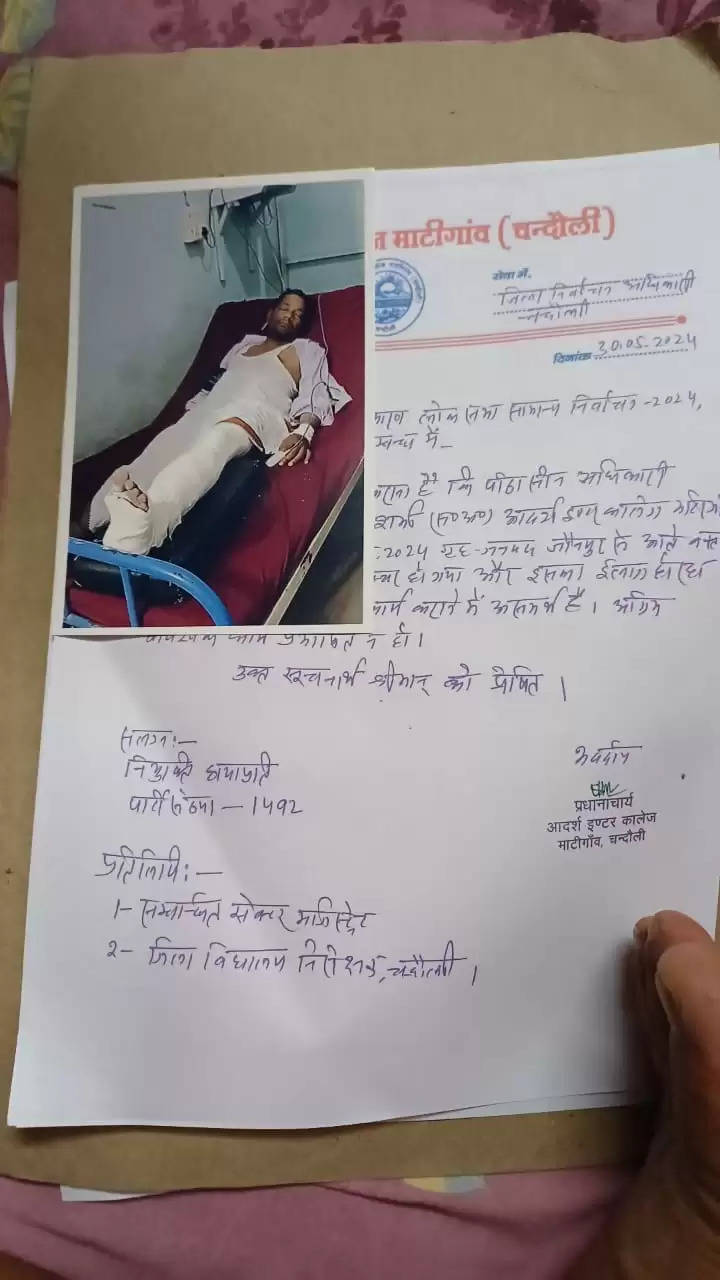 माटीगांव (चन्दौली)
सेवा में,
जिला निर्वाचन अधिकारी
चन्दौली
दिनांक 30.05.2024
लोक सभा सामान्य निर्वाचन -2024,
में -
है कि पीठासीन अधिकारी
शर्मा (स०अ०) आदर्श इण्टर कालेज
2024 गृह-जनपद जौनपुर से आते वक्त
हो गया और इसका ईलाज
कार्य कराने में असमर्थ है। अग्रिम
न हो।
उक्त सूचनार्थ श्रीमान् को प्रेषित।
संलग्न:-
नियुक्ति छायाप्रति
पार्टी संख्या - 1492
भवदीय
प्रधानाचार्य
आदर्श इण्टर कालेज
माटीगाँव, चन्दौली
प्रतिलिपि:-
1- सम्बन्धित सेक्टर मजिस्ट्रेट
2- जिला विद्यालय निरीक्षक, चन्दौली।